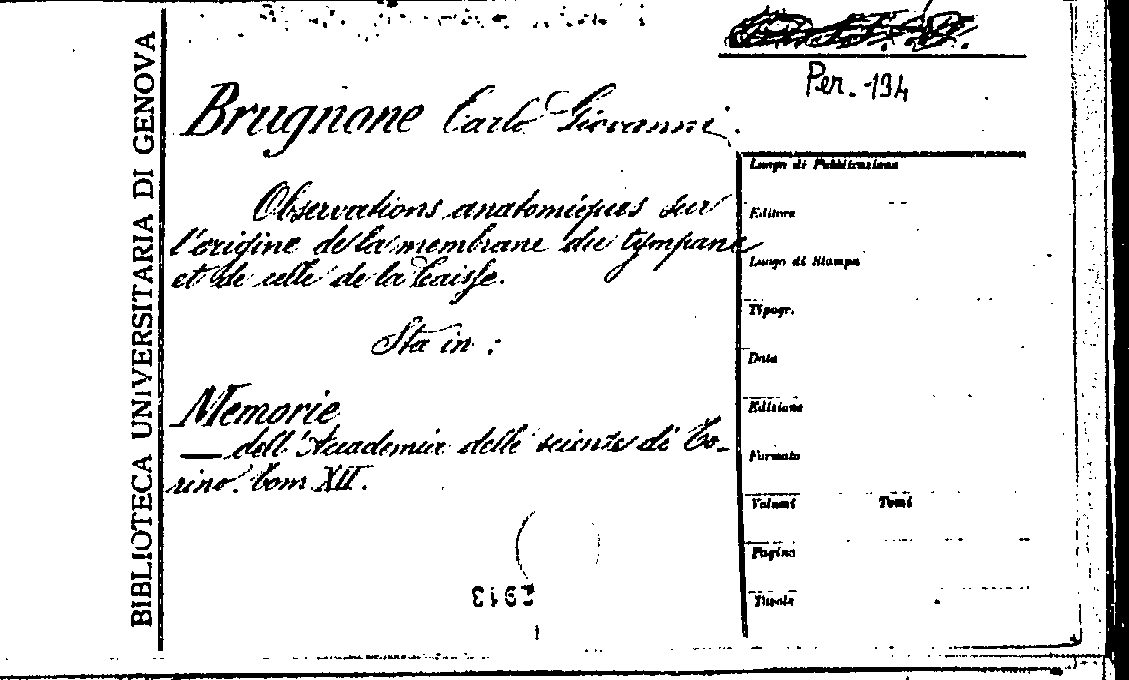 BIBLIOTECA UNIVERSITARIA DI GENOVA
Per. -134
Brugnone Carlo Giovanni.
Observations anatomiques sur
l'origine de la membrane du tympane
et de celle de la Caisse.
Sta in :
Memorie
— dell'Accademia delle scienze di To-
rino. tom XII.
2913
Luogo di Pubblicazione
Editore
Luogo di Stampa
Tipogr.
Data
Edizione
Formato
Volumi Tomi
Pagine
Tavole